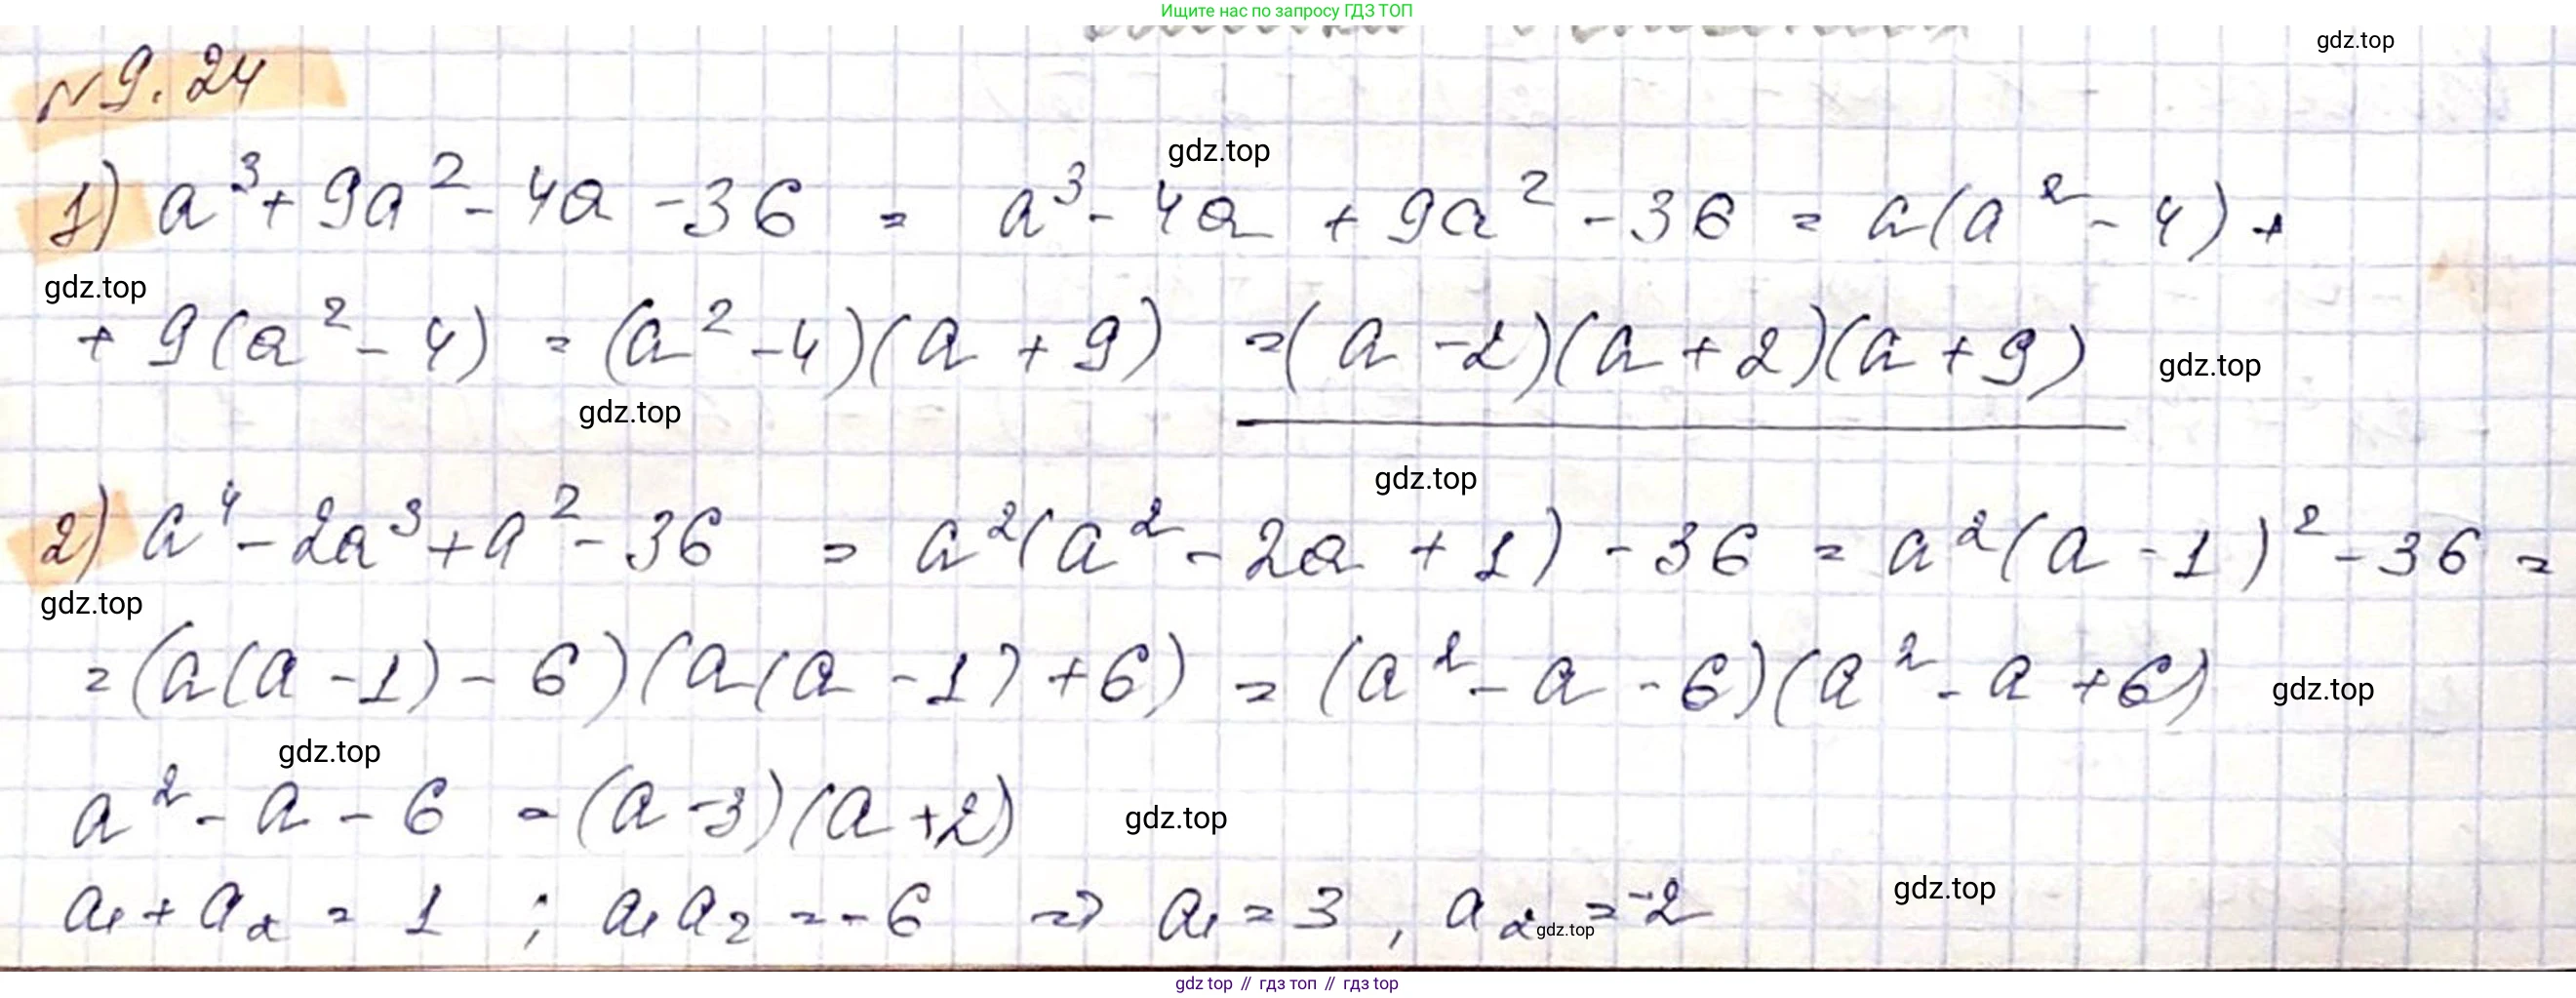 Ищите нас по запросу ГДЗ ТОП
gdz.top
№9.24
gdz.top
1) a³+9a²-4a-36 = a³-4a+9a²-36 = a(a²-4)+
gdz.top
+9(a²-4) = (a²-4)(a+9) =(a-2)(a+2)(a+9)
gdz.top
gdz.top
gdz.top
2) a⁴-2a³+a²-36 = a²(a²-2a+1)-36 = a²(a-1)²-36 =
gdz.top
=(a(a-1)-6)(a(a-1)+6) = (a²-a-6)(a²-a+6)
gdz.top
gdz.top
a²-a-6 =(a-3)(a+2)
gdz.top
a₁+a₂ = 1 ; a₁a₂ =-6 => a₁=3, a₂=-2
gdz.top
gdz.top
gdz top // гдз топ // гдз top